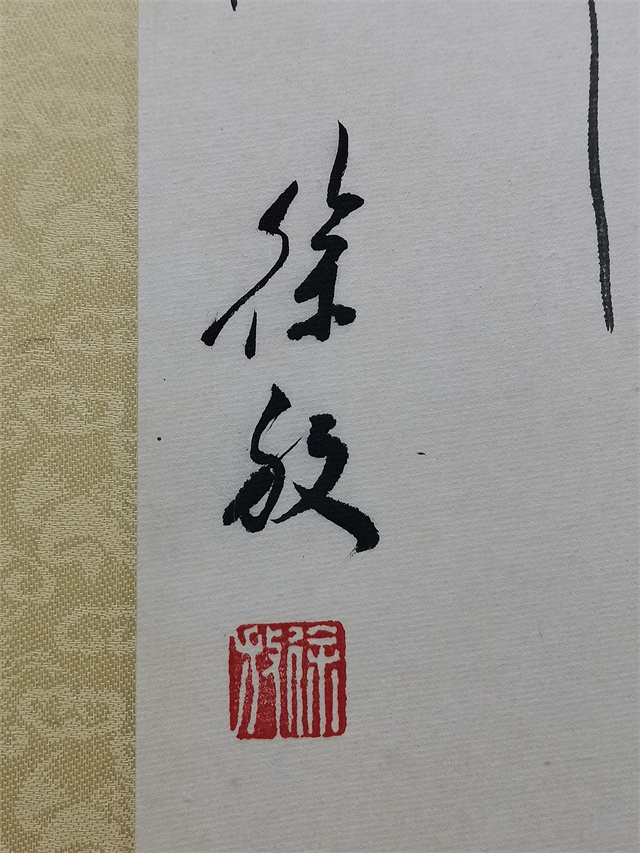 徐放
徐放